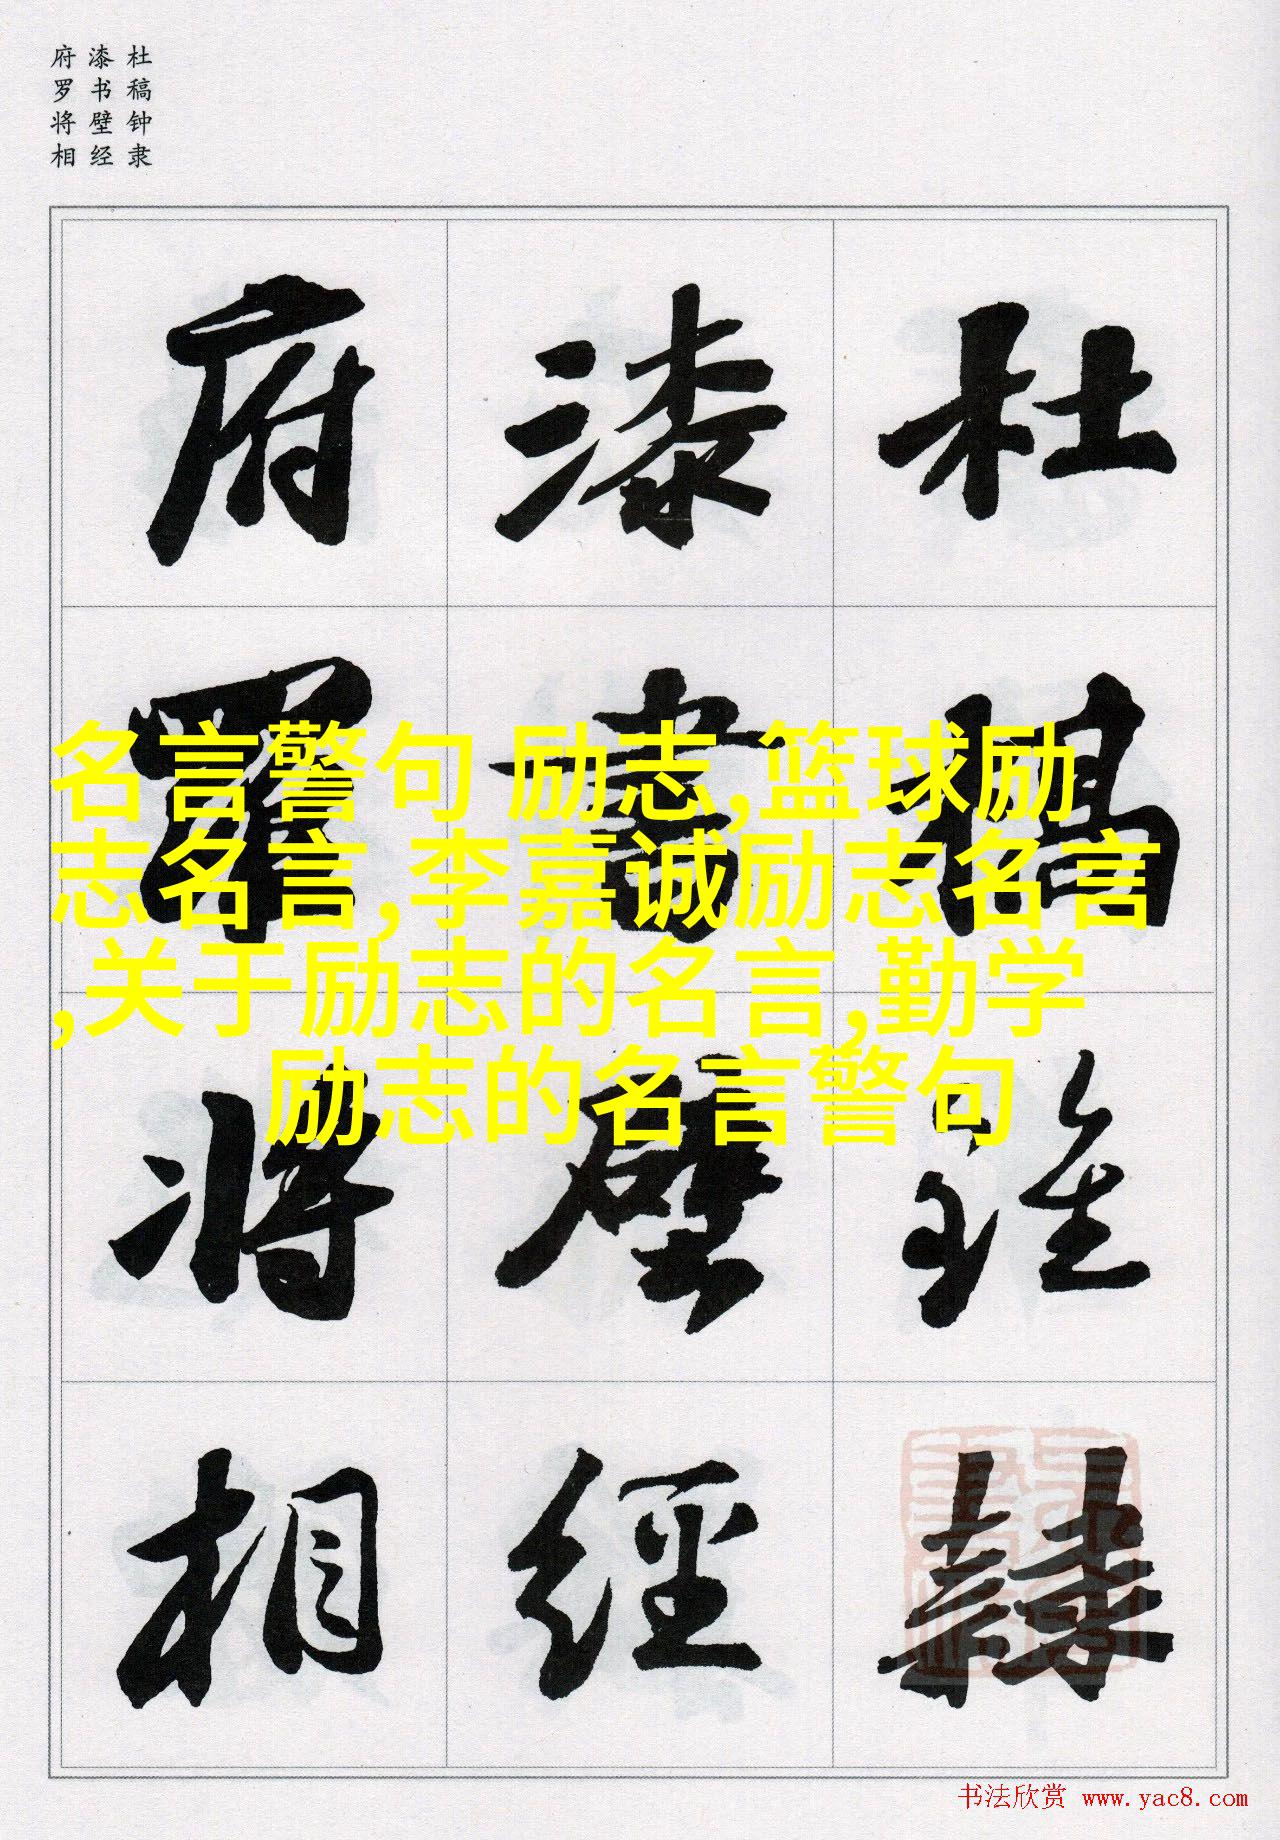 杜稿钟隶
漆书壁经
府罗将相
杜稿鍾隸
漆書壁經
府羅將相
名言警句 励志,篮球励
志名言,李嘉诚励志名言
,关于励志的名言,勤学
励志的名言警句
书法欣赏 www.yac8.com